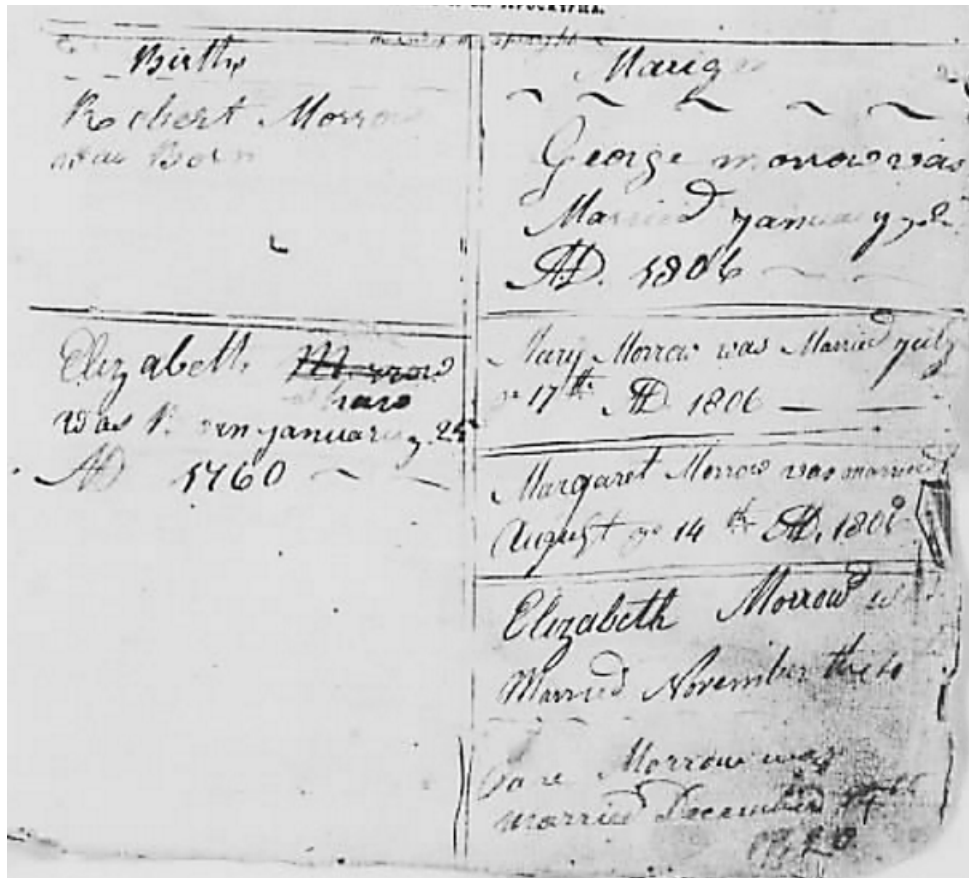 APOCRYPHA.
Births
Robert Morrow
was Born
Elizabeth Morrow
was Born January 25
AD 1760
Mariges
George morow was
Married January
AD. 1806
Mary Morrow was Married july
17th AD 1806
Margaret Morrow was married
August ye 14th AD. 180
Elizabeth Morrow
Married November the 10
Morrow was
married December